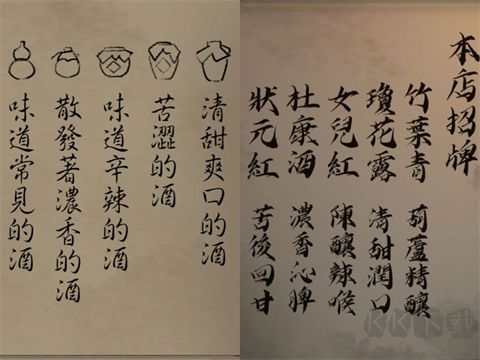 本店招牌
竹葉青 葫蘆精釀
瓊花露 清甜潤口
女兒紅 陳釀辣喉
杜康酒 濃香沁脾
狀元紅 苦後回甘
清甜爽口的酒
苦澀的酒
味道辛辣的酒
散發著濃香的酒
味道常見的酒
KK下載